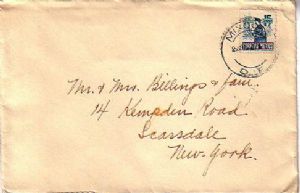 Mr. & Mrs. Billings & Jam.
14 Kempden Road
Scarsdale
New-York.